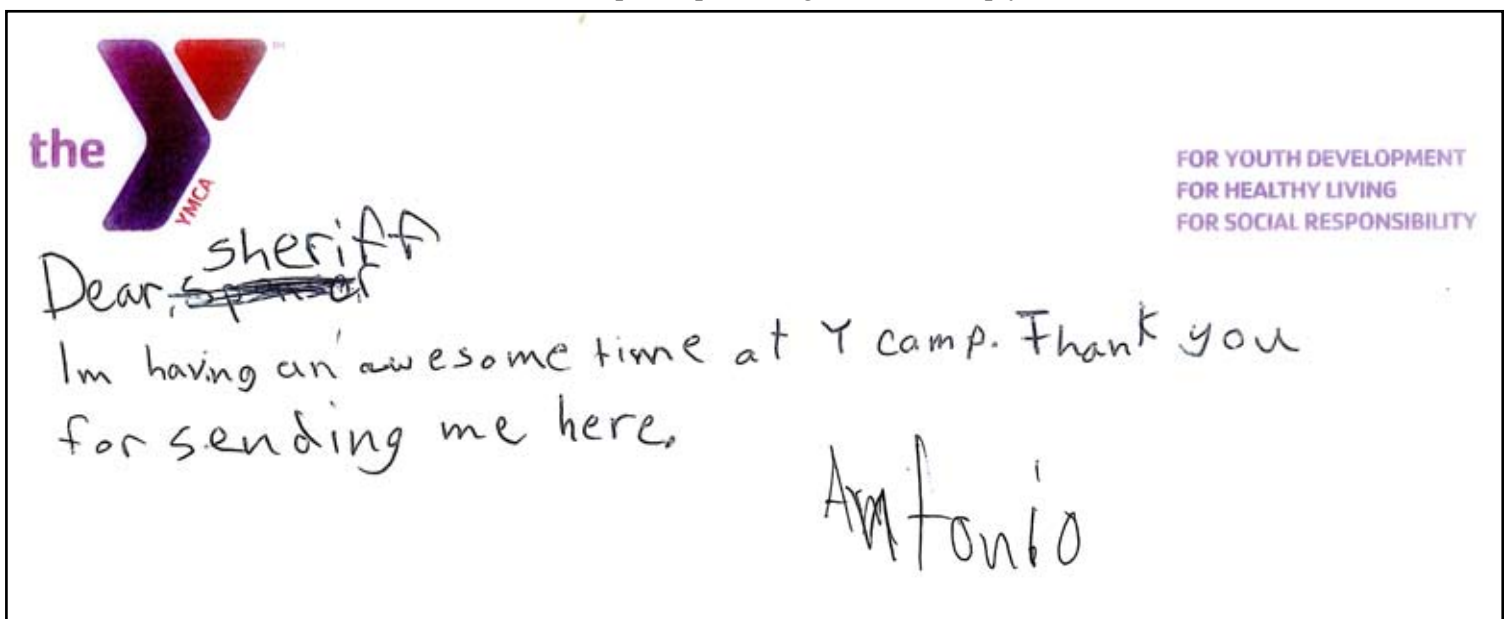 the
YMCA
FOR YOUTH DEVELOPMENT
FOR HEALTHY LIVING
FOR SOCIAL RESPONSIBILITY
sheriff
Dear,
Im having an awesome time at Y camp. Thank you
for sending me here.
Antonio